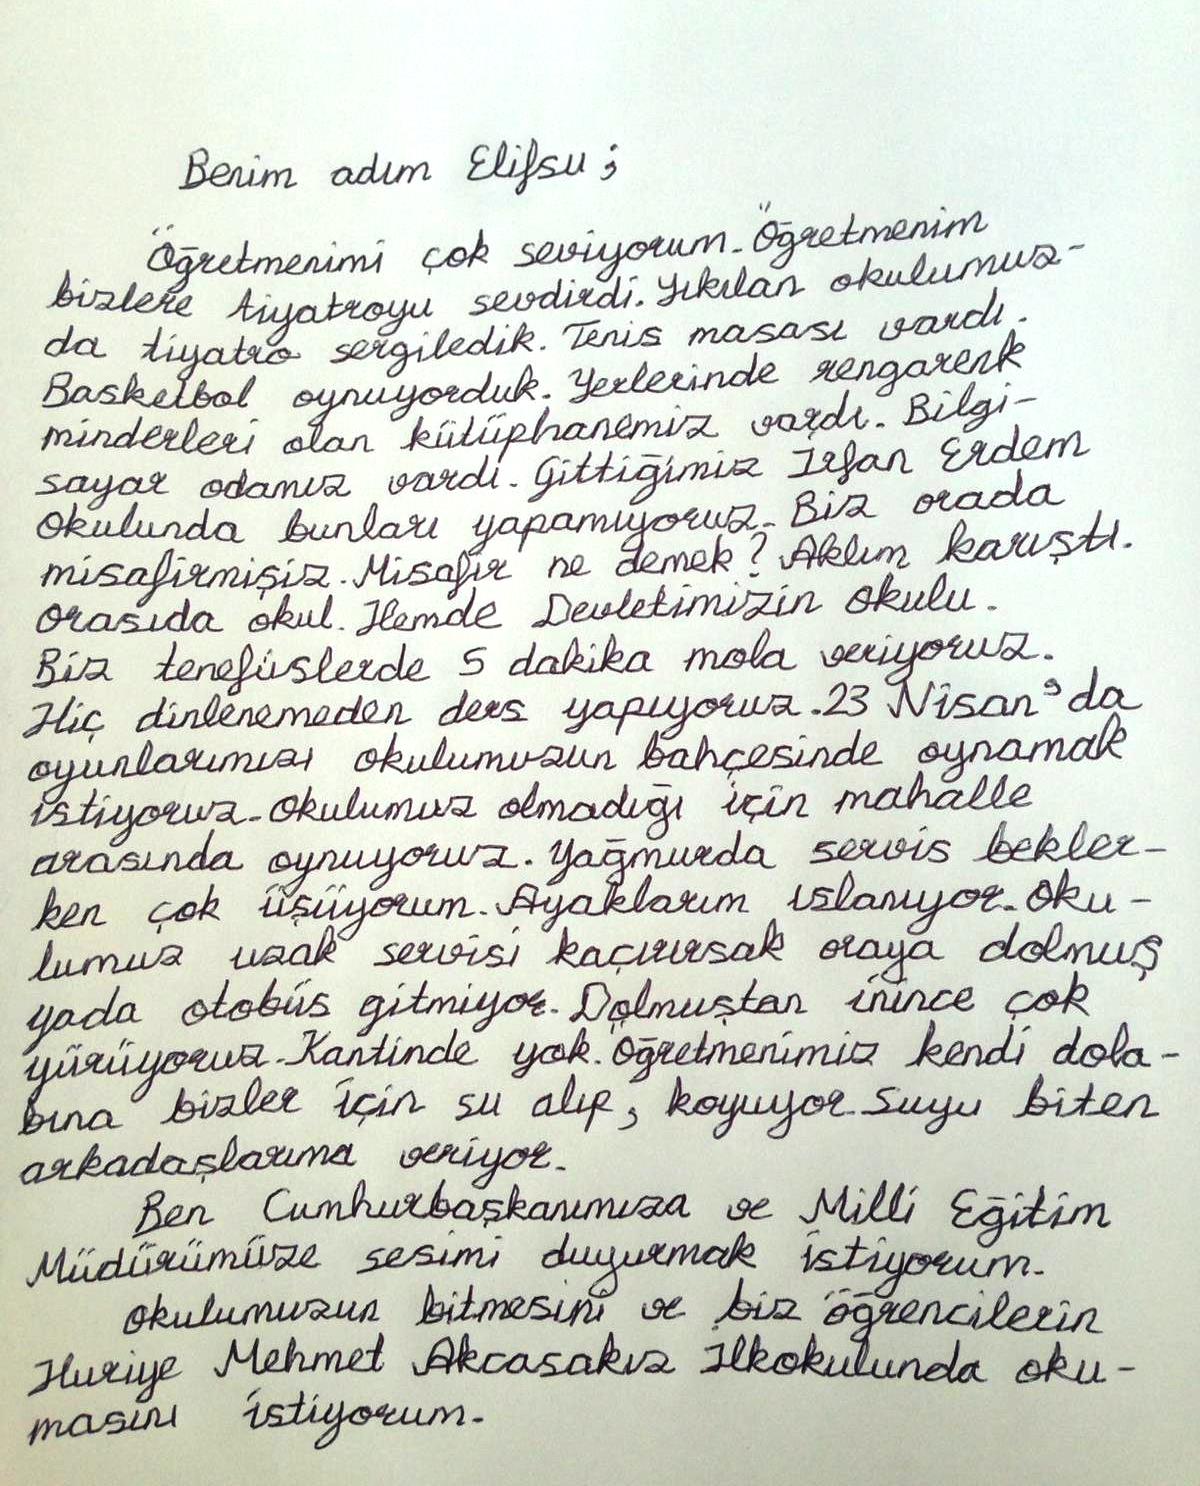 Benim adım Elifsu ;
Öğretmenimi çok seviyorum. Öğretmenim
bizlere tiyatroyu sevdirdi. Yıkılan okulumuz-
da tiyatro sergiledik. Tenis masası vardı.
Basketbol oynuyorduk. Yerlerinde rengarenk
minderleri olan kütüphanemiz vardı. Bilgi-
sayar odamız vardı. Gittiğimiz İrfan Erdem
okulunda bunları yapamıyoruz. Biz orada
misafirmişiz. Misafir ne demek? Aklım karıştı.
Orasıda okul. Hemde Devletimizin okulu.
Biz tenefüslerde 5 dakika mola veriyoruz.
Hiç dinlenemeden ders yapıyoruz. 23 Nisan'da
oyunlarımızı okulumuzun bahçesinde oynamak
istiyoruz. Okulumuz olmadığı için mahalle
arasında oynuyoruz. Yağmurda servis bekler-
ken çok üşüyorum. Ayaklarım ıslanıyor. Oku-
lumuz uzak servisi kaçırırsak oraya dolmuş
yada otobüs gitmiyor. Dolmuştan inince çok
yürüyoruz. Kantinde yok. Öğretmenimiz kendi dola-
bına bizler için su alıp, koyuyor. Suyu biten
arkadaşlarıma veriyor.
Ben Cumhurbaşkanımıza ve Milli Eğitim
Müdürümüze sesimi duyurmak istiyorum.
Okulumuzun bitmesini ve biz öğrencilerin
Huriye Mehmet Akcasakız İlkokulunda oku-
masını istiyorum.